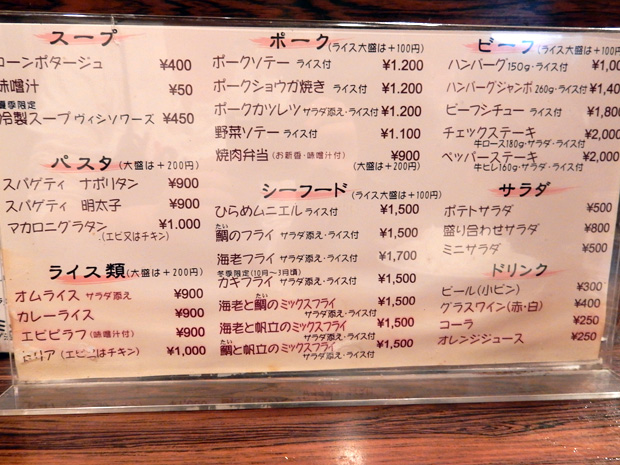 スープ
コーンポタージュ ¥400
味噌汁 ¥50
夏季限定
冷製スープ ヴィシソワーズ ¥450
パスタ (大盛は+200円)
スパゲティ ナポリタン ¥900
スパゲティ 明太子 ¥900
マカロニグラタン ¥1.000
(エビ又はチキン)
ライス類 (大盛は+200円)
オムライス サラダ添え ¥900
カレーライス ¥900
エビピラフ (味噌汁付) ¥900
ドリア (エビ又はチキン) ¥1,000
ポーク (ライス大盛は+100円)
ポークソテー ライス付 ¥1.200
ポークショウガ焼き ライス付 ¥1.200
ポークカツレツ サラダ添え・ライス付 ¥1.200
野菜ソテー ライス付 ¥1.100
焼肉弁当 (お新香・味噌汁付) ¥900
(大盛は+200円)
シーフード (ライス大盛は+100円)
ひらめムニエル ライス付 ¥1,500
たい
鯛のフライ サラダ添え・ライス付 ¥1,500
海老フライ サラダ添え・ライス付 ¥1,700
冬季限定(10月~3月頃)
カキフライ サラダ添え・ライス付 ¥1,500
たい
海老と鯛のミックスフライ ¥1,500
サラダ添え・ライス付
海老と帆立のミックスフライ ¥1,500
サラダ添え・ライス付
たい
鯛と帆立のミックスフライ ¥1,500
サラダ添え・ライス付
ビーフ (ライス大盛は+100円)
ハンバーグ 150g・ライス付 ¥1,00
ハンバーグジャンボ 260g・ライス付 ¥1,40
ビーフシチュー ライス付 ¥1,800
チェックステーキ ¥2,000
牛ロース180g・サラダ・ライス付
ペッパーステーキ ¥2,000
牛ヒレ160g・サラダ・ライス付
サラダ
ポテトサラダ ¥500
盛り合わせサラダ ¥800
ミニサラダ ¥500
ドリンク
ビール(小ビン) ¥300
グラスワイン(赤・白) ¥400
コーラ ¥250
オレンジジュース ¥250